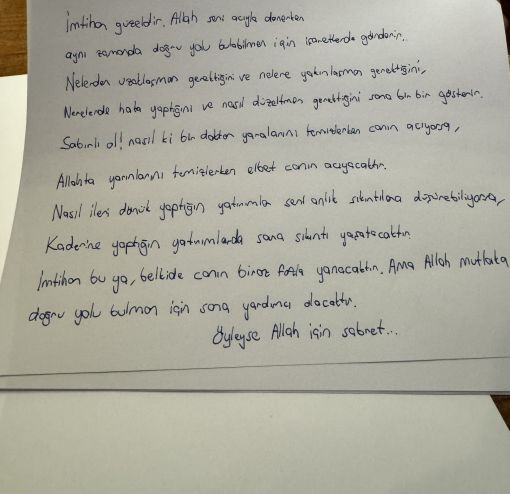 İmtihan güzeldir. Allah seni acıyla denerken
aynı zamanda doğru yolu bulabilmen için işaretlerde gönderir.
Nelerden uzaklaşman gerektiğini ve nelere yakınlaşman gerektiğini,
Nerelerde hata yaptığını ve nasıl düzeltmen gerektiğini sana bir bir gösterir.
Sabırlı ol! nasıl ki bir doktor yaralarını temizlerken canın acıyorsa,
Allahta yarınlarını temizlerken elbet canın acıyacaktır.
Nasıl ileri dönük yaptığın yatırımla seni anlık sıkıntılara düşürebiliyorsa,
Kaderine yaptığın yatırımlarda sana sıkıntı yaşatacaktır.
İmtihan bu ya, belkide canın biraz fazla yanacaktır. Ama Allah mutlaka
doğru yolu bulman için sana yardımcı olacaktır.
Öyleyse Allah için sabret...